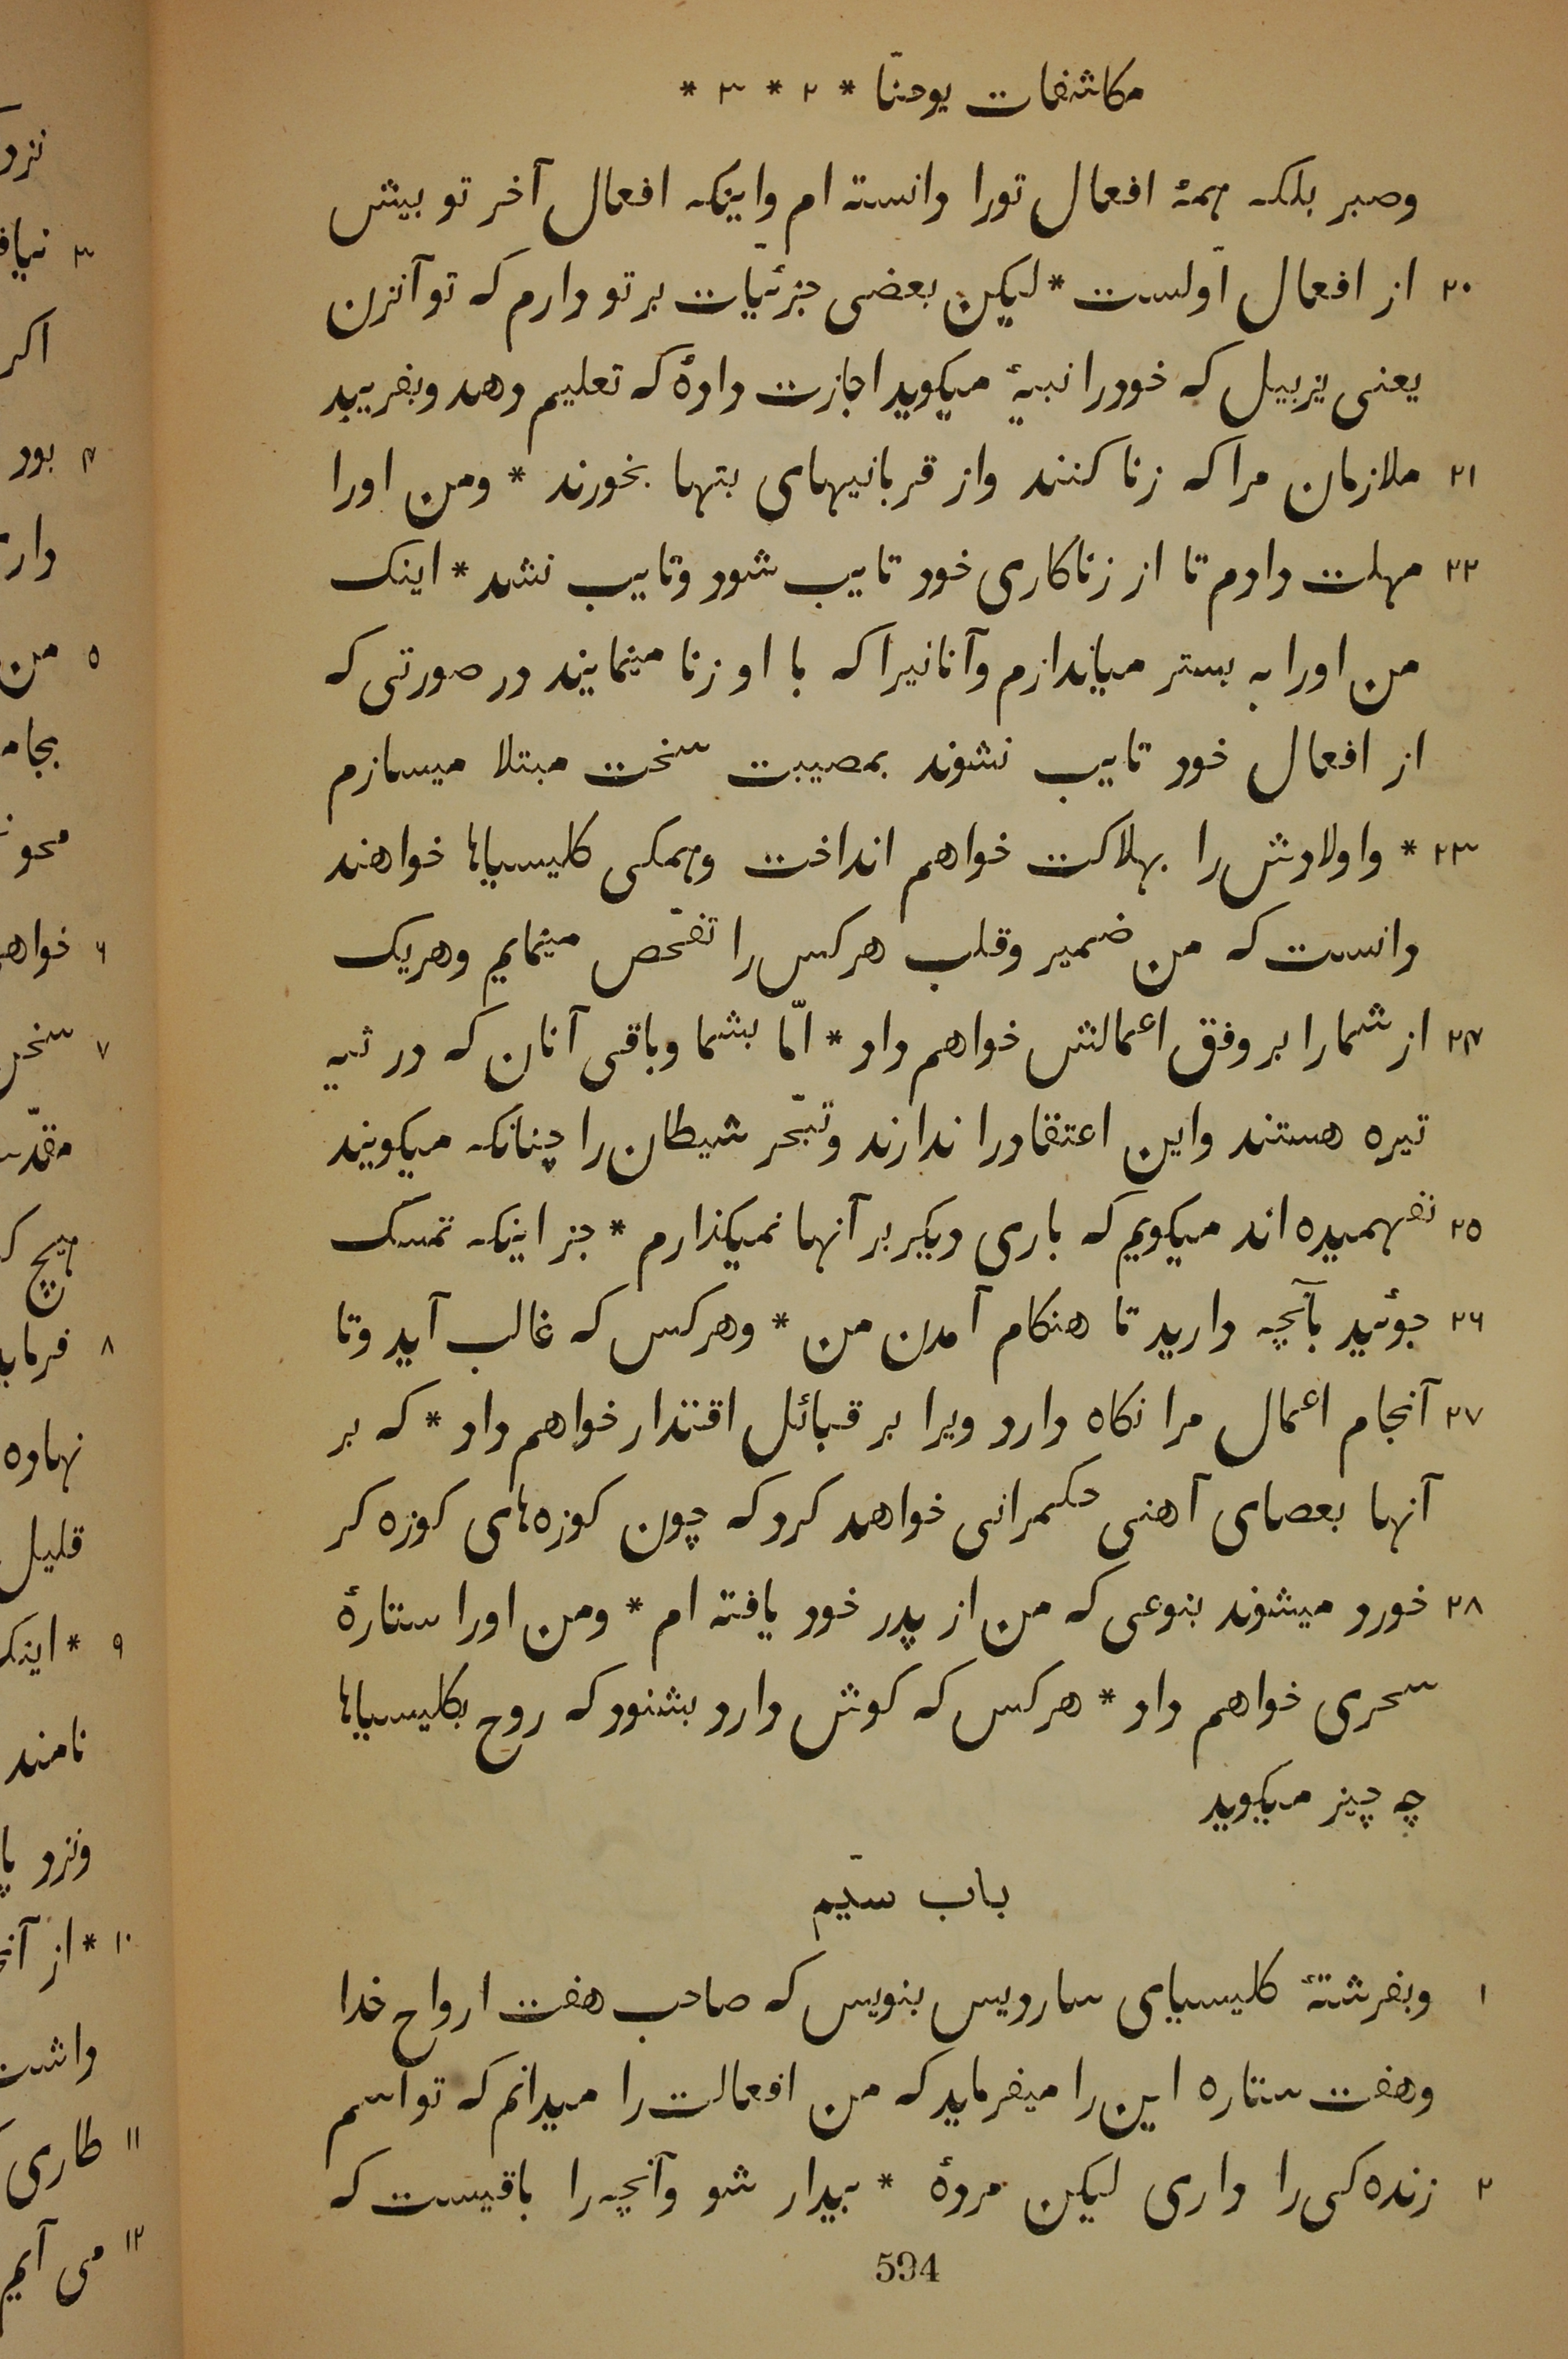 مکاشفات یوحنّا * ۲ * ۳ *
وصبر بلکه همهٔ افعال تورا دانسته ام واینکه افعال آخر تو بیش
۲۰ از افعال اوّلست * لیکن بعضی جزئیّات بر تو دارم که تو آنزن
یعنی یزبیل که خودرا نبیهٔ میکوید اجازت دادهٔ که تعلیم دهد وبفریبد
۲۱ ملازمان مرا که زنا کنند واز قربانیهای بتها بخورند * ومن اورا
۲۲ مهلت دادم تا از زناکاری خود تایب شود وتایب نشد * اینک
من اورا به بستر میاندازم وآنانیرا که با او زنا مینمایند در صورتی که
از افعال خود تایب نشوند بمصیبت سخت مبتلا میسازم
۲۳ * واولادش را بهلاکت خواهم انداخت وهمکی کلیسیاها خواهند
دانست که من ضمیر وقلب هرکس را تفحّص مینمایم وهریک
۲۴ از شمارا بر وفق اعمالش خواهم داد * امّا بشما وباقی آنان که در ثیه
تیره هستند واین اعتقادرا ندارند وتبحّر شیطان را چنانکه میکویند
۲۵ نفهمیده اند میکویم که باری دیکر بر آنها نمیکذارم * جز اینکه تمسک
۲۶ جوئید بآنچه دارید تا هنکام آمدن من * وهرکس که غالب آید وتا
۲۷ آنجام اعمال مرا نکاه دارد ویرا بر قبائل اقتدار خواهم داد * که بر
آنها بعصای آهنی حکمرانی خواهد کرد که چون کوزه‌های کوزه کر
۲۸ خورد میشوند بنوعی که من از پدر خود یافته ام * ومن اورا ستارهٔ
سحری خواهم داد * هرکس که کوش دارد بشنود که روح بکلیسیاها
چه چیز میکوید
باب سیّم
۱ وبفرشتهٔ کلیسیای سارویس بنویس که صاحب هفت ارواح خدا
وهفت ستاره این را میفرماید که من افعالت را میدانم که تو اسم
۲ زنده کی را داری لیکن مردهٔ * بیدار شو وآنچه را باقیست که
594
نزد
۳
اکر
۴ بود
۵ من
بجامه
۶
۷ سخن
هیچ
۸
نهاده
قلیل
۹ *
نامند
ونزد
۱۰ * از
۱۱ طاری
۱۲ می آیم